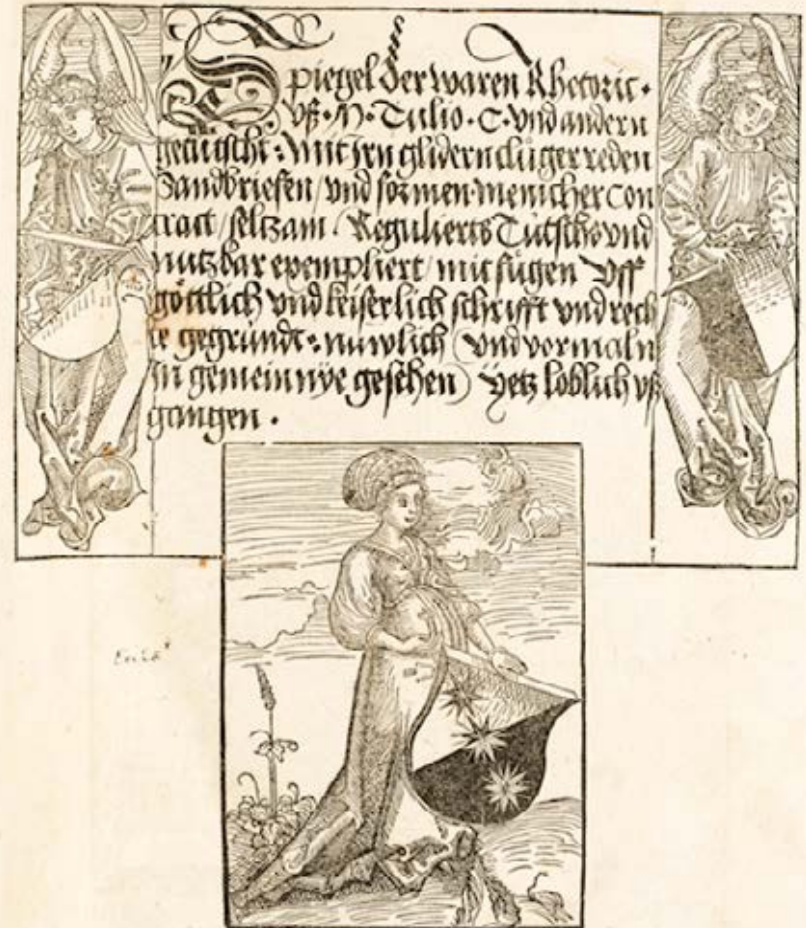 Spiegel der waren Rhetoric.
vß. M. Tulio. C. vnd andern
getütscht: Mit jrn glidern clůger reden
Sandbriefen / vnd formen. menicher con
tract / seltzam. Regulierts Tütschs vnd
nutzbar exempliert / mit fügen vff
göttlich vnd keiserlich schrifft vnd rech
te gegründt: nuwlich (vnd vormaln
jn gemein nye gesehen) yetz loblich vß
gangen.